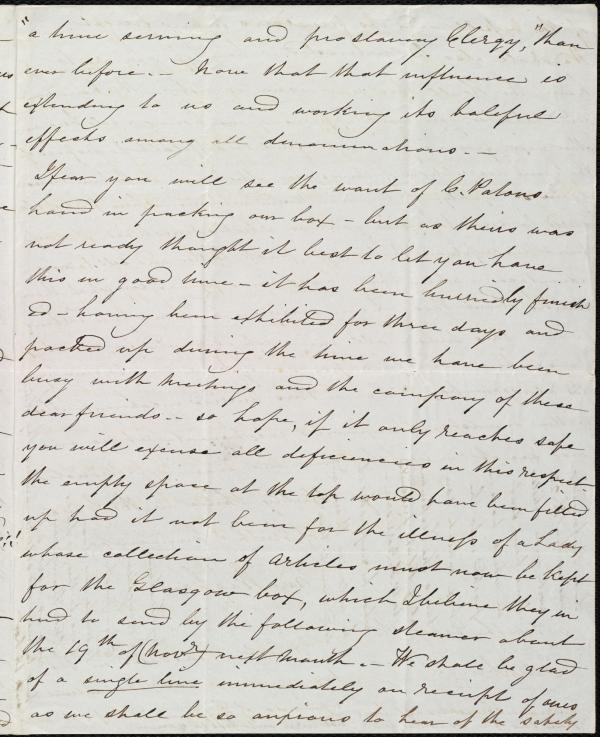 "a time serving and proslavery Clergy," than
ever before. - Now that that influence is
extending to us and working its baleful
effects among all denominations. -
I fear you will see the want of C. Patons
hand in packing our box - but as theirs was
not ready thought it best to let you have
this in good time - it has been hurriedly finish
ed - having been exhibited for three days and
packed up during the time we have been
busy with meetings and the company of these
dear friends - so hope, if it only reaches safe
you will excuse all deficiencies in this respect
the empty space at the top would have been filled
up had it not been for the illness of a Lady
whose collection of articles must now be kept
for the Glasgow box, which I believe they in
tend to send by the following steamer about
the 19th of (Novr) next month. - We shall be glad
of a single line immediately on receipt of ours
as we shall be so anxious to hear of the safety